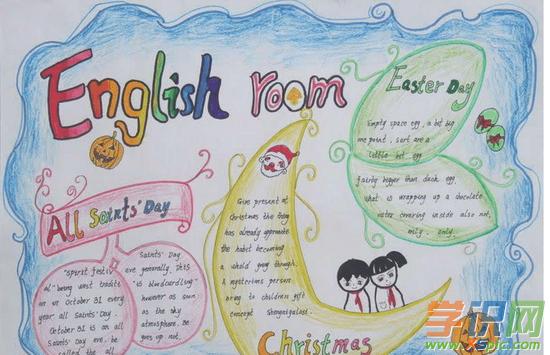 English room
Easter Day
Empty space egg, a bit big
me point, sort are a
little bit egg
fairly bigger than duck egg,
what is wrapping up a chocolate
outer covering inside also not,
only. only.
All Saints' Day
"Spirst festiv
al"-being west traditi
on us October 31 every
year-all Saints' Day.
October 31 is an all
Saints' Day eve. be
called the all
Saints' Day
are generally, This
is blindcarding-
however as soon
as the sky
atmosphere. Be
goes up not.
Give present at
Christmas the today
has already approximate
the habit becoming
a whole going through.
A mysterious person
bring to children's gift
concept Shengnipalassi.
Christmas
学识网